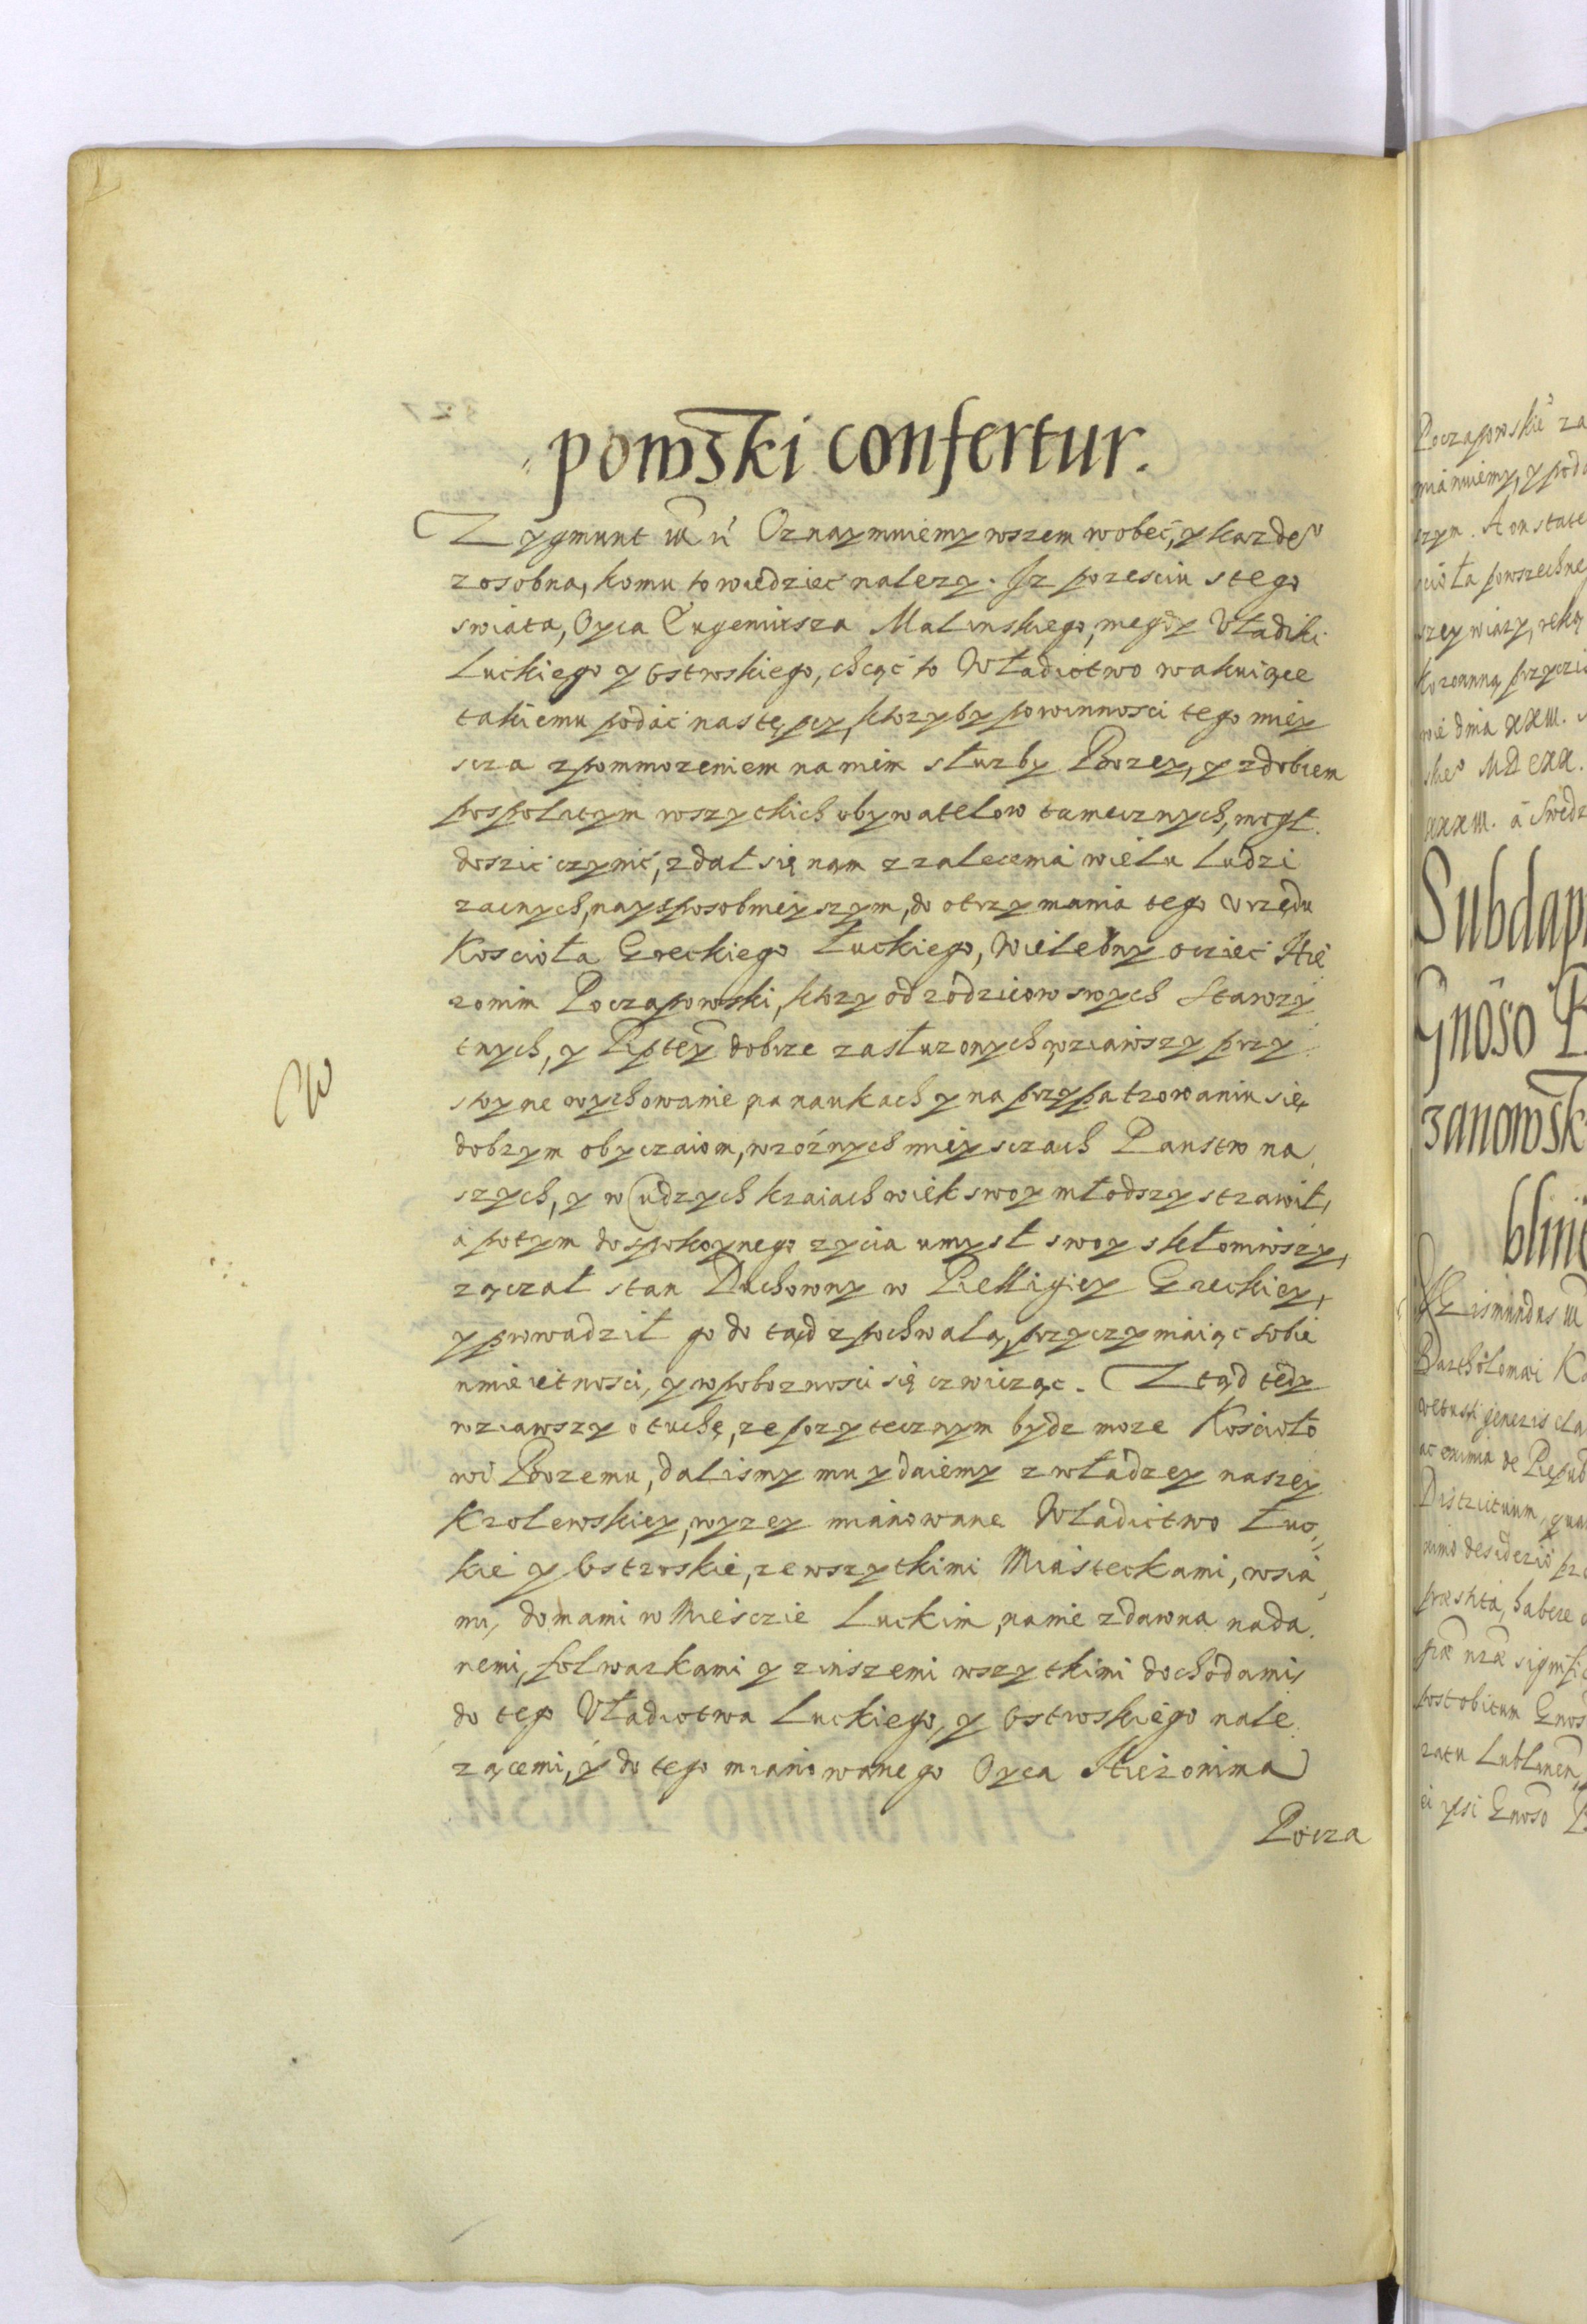 powski confertur.
Zygmunt III ń Oznaymuiemy wszem wobeć, y kazdeo
zosobna, komu to wiedzieć nalezy. Iz po zesciu s tego
swiata, Oyca Eugeniusza Malinskiego, niegdy Vładiki
Luckiego y Ostroskiego, chcąć to Władictwo wakuiące
takiemu podać następcy, ktoryby powinnosci tego miey
scza z pommozeniem na niem słuzby Bozey, y z dobrem
pospolitym wszytkich obywatelow tamecznych, mogł
doszić czynić, zdał się nam z zalecenia wielu ludzi
zacnych, nayspobnieyszym, do otrzymania tego Vrzędu
Koscioła Greckiego Łuckiego, Wielebny ociec Hie
ronim Poczapowski, ktory od rodzicow swych Starozy
tnych, y Rzptey dobrze zasłuzonych wziąwszy przy
stoyne wychowanie, na naukach y na przypatrowaniu się
dobrym obyczaiom, w roźnych mieysczach Panstw na
szych, y w Cudzych kraiach wiek swoy młodszy strawił,
á potym do spokoynego zycia umysł swoy skłoniwszy,
zączał stan Duchowny w Relligiey Greckiey,
y prowadził go do tąd z pochwałą, przyczyniaiąc sobie
umieietnosci, y w poboznosci się czwicząc. Ztąd tedy
wziąwszy otuchę, ze pozytecznym bydz moze Kosciolo
wi Bozemu, dalismy mu y daiemy z władzey naszey
Krolewskiey, wyzey mianowane Władictwo Łuc
kie y Ostroskie, ze wszytkimi Miasteckami, wsia
mi, domami w Miesczie Luckim, na nie zdawna nada
nemi, folwarkami y inszemi wszytkimi dochodami,
do tego Vładictwa Luckiego, y Ostroskiego nale
zącemi, y do tego mianowanego Oyca Hieronima
Pocza
W
Poczapowskieo za
mianuiemy, y poda
szym. A on statec
scioła powszechne
szey wiary, ręką
Koronną przyczis
wie dnia XXIII.
skieo MDCXX.
XXXIII. á Swedz
Subdap
Gnoso B
zanowsk
blin
SIgismundus III
Bartholomæi Ka
vetusti generis cla
ac eximia de Repub
Districtuum, qua
nimo desiderio pr
præstita, habere
post obitum Gnos
ratu Lublinen
ei ipsi Gnoso B